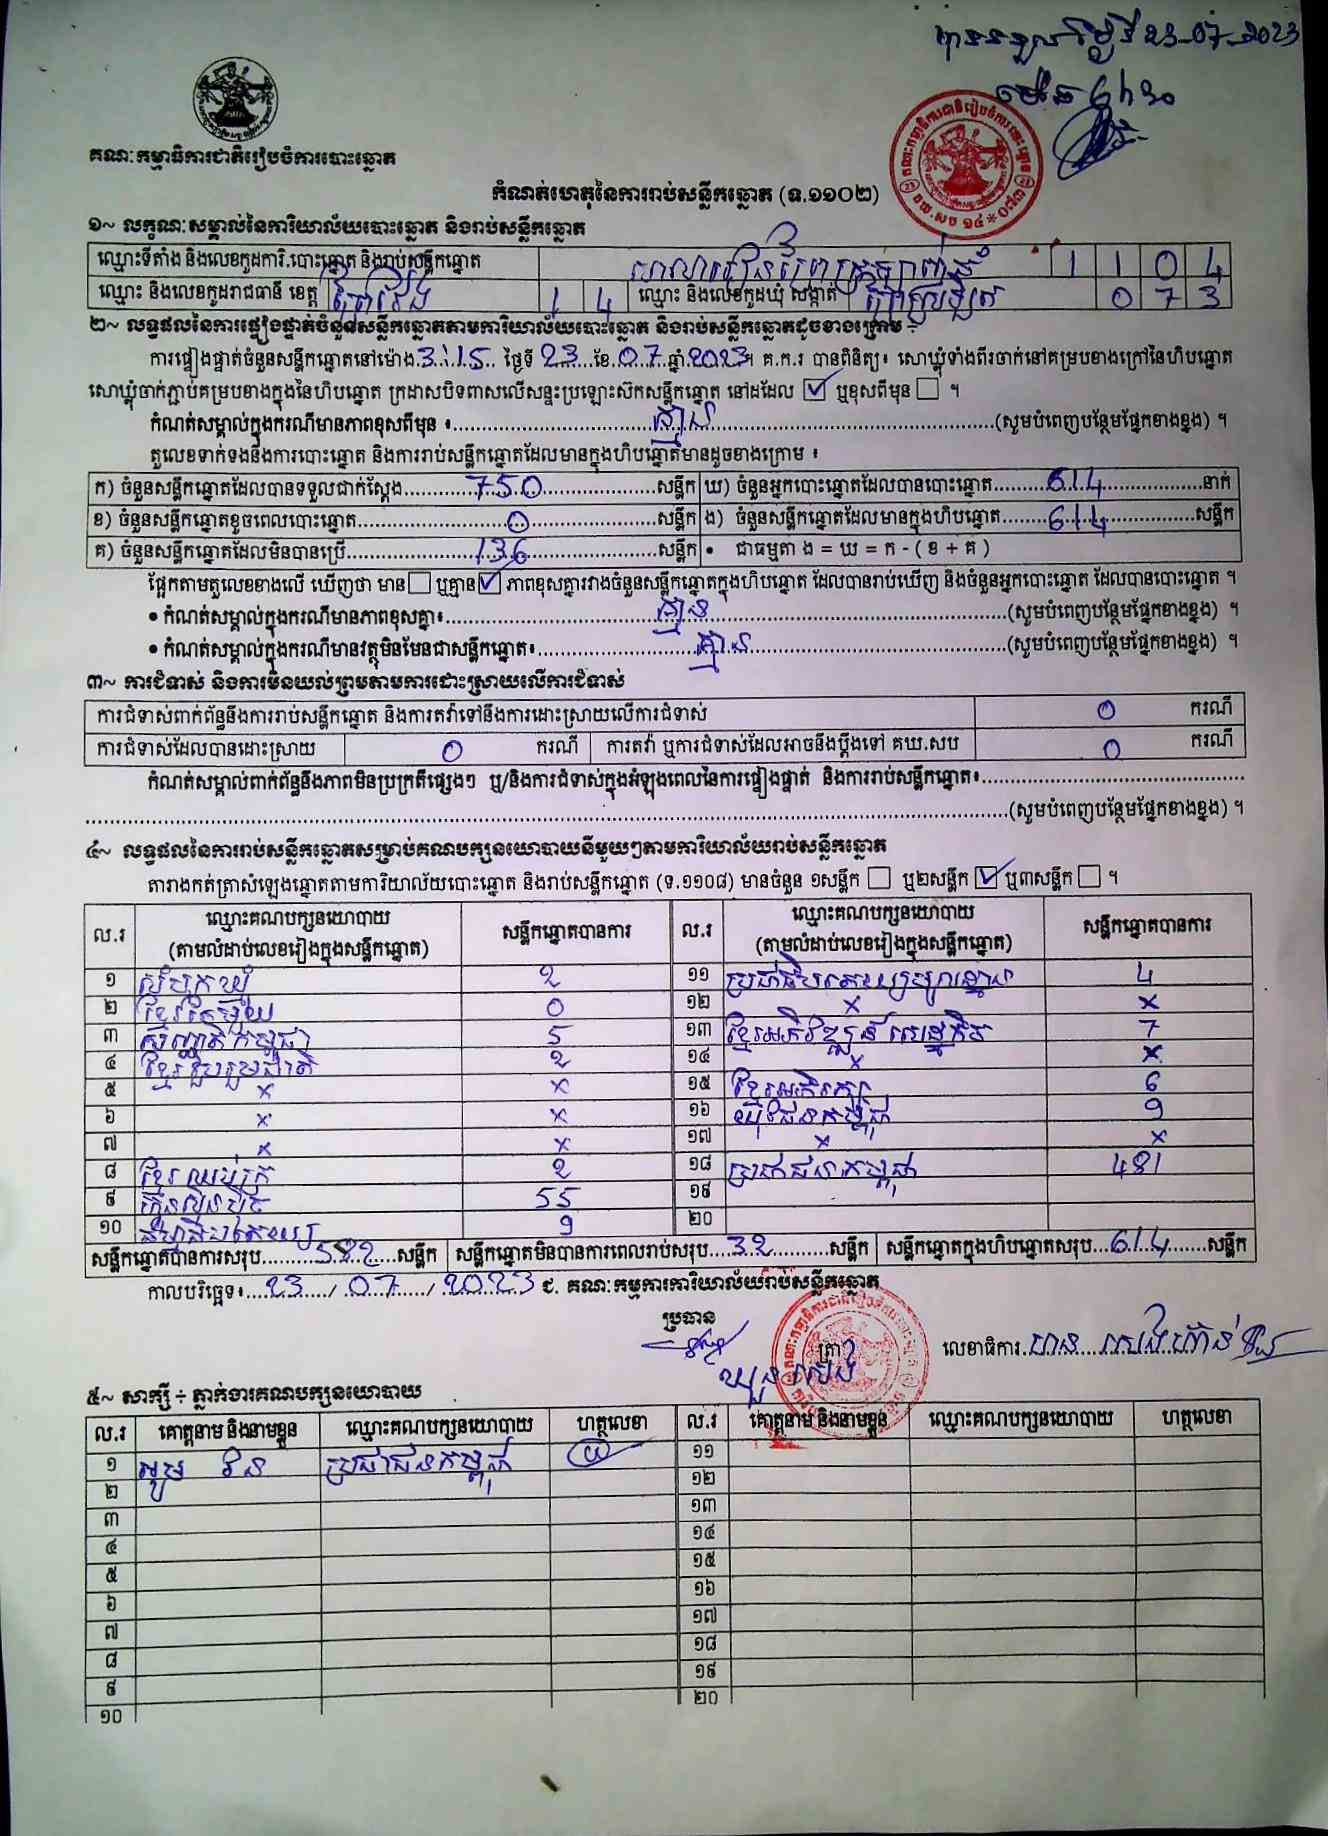 បានទទួល ថ្ងៃទី 23-07-2023
ម៉ោង
គណៈកម្មាធិការជាតិរៀបចំការបោះឆ្នោត
កំណត់ហេតុនៃការរាប់សន្លឹកឆ្នោត (ទ.១១០២)
១~ លក្ខណៈសម្គាល់នៃការិយាល័យបោះឆ្នោត និងរាប់សន្លឹកឆ្នោត
ឈ្មោះទីតាំង និងលេខកូដការិ.បោះឆ្នោត និងរាប់សន្លឹកឆ្នោត សាលារៀន 1 1 0 4
ឈ្មោះ និងលេខកូដរាជធានី ខេត្ត ព្រៃវែង 1 4 ឈ្មោះ និងលេខកូដឃុំ សង្កាត់ 0 7 3
២~ លទ្ធផលនៃការផ្ទៀងផ្ទាត់ចំនួនសន្លឹកឆ្នោតតាមការិយាល័យបោះឆ្នោត និងរាប់សន្លឹកឆ្នោតដូចខាងក្រោម ÷
ការផ្ទៀងផ្ទាត់ចំនួនសន្លឹកឆ្នោតនៅម៉ោង 3:15 ថ្ងៃទី 23 ខែ 07 ឆ្នាំ 2023។ គ.ក.រ បានពិនិត្យ៖ សោឃ្លុំទាំងពីរចាក់នៅគម្របខាងក្រៅនៃហិបឆ្នោត
សោឃ្លុំចាក់ភ្ជាប់គម្របខាងក្នុងនៃហិបឆ្នោត ក្រដាសបិទពាសលើសន្ទះប្រឡោះស៊កសន្លឹកឆ្នោត នៅដដែល ☑ ឬខុសពីមុន ☐ ។
កំណត់សម្គាល់ក្នុងករណីមានភាពខុសពីមុន ៖ គ្មាន (សូមបំពេញបន្ថែមផ្នែកខាងខ្នង) ។
តួលេខទាក់ទងនឹងការបោះឆ្នោត និងការរាប់សន្លឹកឆ្នោតដែលមានក្នុងហិបឆ្នោតមានដូចខាងក្រោម ៖
ក) ចំនួនសន្លឹកឆ្នោតដែលបានទទួលជាក់ស្តែង 750 សន្លឹក ឃ) ចំនួនអ្នកបោះឆ្នោតដែលបានបោះឆ្នោត 614 នាក់
ខ) ចំនួនសន្លឹកឆ្នោតខូចពេលបោះឆ្នោត 0 សន្លឹក ង) ចំនួនសន្លឹកឆ្នោតដែលមានក្នុងហិបឆ្នោត 614 សន្លឹក
គ) ចំនួនសន្លឹកឆ្នោតដែលមិនបានប្រើ 136 សន្លឹក • ជាធម្មតា ង = ឃ = ក - ( ខ + គ )
ផ្អែកតាមតួលេខខាងលើ ឃើញថា មាន ☐ ឬគ្មាន ☑ ភាពខុសគ្នារវាងចំនួនសន្លឹកឆ្នោតក្នុងហិបឆ្នោត ដែលបានរាប់ឃើញ និងចំនួនអ្នកបោះឆ្នោត ដែលបានបោះឆ្នោត ។
• កំណត់សម្គាល់ក្នុងករណីមានភាពខុសគ្នា៖ គ្មាន (សូមបំពេញបន្ថែមផ្នែកខាងខ្នង) ។
• កំណត់សម្គាល់ក្នុងករណីមានវត្ថុមិនមែនជាសន្លឹកឆ្នោត៖ គ្មាន (សូមបំពេញបន្ថែមផ្នែកខាងខ្នង) ។
៣~ ការជំទាស់ និងការមិនយល់ព្រមតាមការដោះស្រាយលើការជំទាស់
ការជំទាស់ពាក់ព័ន្ធនឹងការរាប់សន្លឹកឆ្នោត និងការតវ៉ាទៅនឹងការដោះស្រាយលើការជំទាស់ 0 ករណី
ការជំទាស់ដែលបានដោះស្រាយ 0 ករណី ការតវ៉ា ឬការជំទាស់ដែលអាចនឹងប្តឹងទៅ គឃ.សប 0 ករណី
កំណត់សម្គាល់ពាក់ព័ន្ធនឹងភាពមិនប្រក្រតីផ្សេងៗ ឬ/និងការជំទាស់ក្នុងអំឡុងពេលនៃការផ្ទៀងផ្ទាត់ និងការរាប់សន្លឹកឆ្នោត៖
(សូមបំពេញបន្ថែមផ្នែកខាងខ្នង) ។
៤~ លទ្ធផលនៃការរាប់សន្លឹកឆ្នោតសម្រាប់គណបក្សនយោបាយនីមួយៗតាមការិយាល័យរាប់សន្លឹកឆ្នោត
តារាងកត់ត្រាសំឡេងឆ្នោតតាមការិយាល័យបោះឆ្នោត និងរាប់សន្លឹកឆ្នោត (ទ.១១០៨) មានចំនួន ១សន្លឹក ☐ ឬ២សន្លឹក ☑ ឬ៣សន្លឹក ☐ ។
ល.រ ឈ្មោះគណបក្សនយោបាយ (តាមលំដាប់លេខរៀងក្នុងសន្លឹកឆ្នោត) សន្លឹកឆ្នោតបានការ ល.រ ឈ្មោះគណបក្សនយោបាយ (តាមលំដាប់លេខរៀងក្នុងសន្លឹកឆ្នោត) សន្លឹកឆ្នោតបានការ
១ សំបុកឃ្មុំ 2 ១១ ប្រជាធិបតេយ្យមូលដ្ឋាន 4
២ ខ្មែរតែមួយ 0 ១២ x x
៣ សញ្ជាតិកម្ពុជា 5 ១៣ ខ្មែរអភិវឌ្ឍន៍សេដ្ឋកិច្ច 7
៤ ខ្មែររួបរួមជាតិ 2 ១៤ x x
៥ x x ១៥ ខ្មែរអភិរក្ស 6
៦ x x ១៦ យុវជនកម្ពុជា 9
៧ x x ១៧ x x
៨ ខ្មែរឈប់ក្រ 2 ១៨ ប្រជាជនកម្ពុជា 481
៩ ហ៊្វុនស៊ិនប៉ិច 55 ១៩
១០ ធម្មាធិបតេយ្យ 9 ២០
សន្លឹកឆ្នោតបានការសរុប 582 សន្លឹក សន្លឹកឆ្នោតមិនបានការពេលរាប់សរុប 32 សន្លឹក សន្លឹកឆ្នោតក្នុងហិបឆ្នោតសរុប 614 សន្លឹក
កាលបរិច្ឆេទ៖ 23 / 07 / 2023 ជ. គណៈកម្មការការិយាល័យរាប់សន្លឹកឆ្នោត
ប្រធាន
ត្រា លេខាធិការ
៥~ សាក្សី ÷ ភ្នាក់ងារគណបក្សនយោបាយ
ល.រ គោត្តនាម និងនាមខ្លួន ឈ្មោះគណបក្សនយោបាយ ហត្ថលេខា ល.រ គោត្តនាម និងនាមខ្លួន ឈ្មោះគណបក្សនយោបាយ ហត្ថលេខា
១ ប្រជាជនកម្ពុជា ១១
២ ១២
៣ ១៣
៤ ១៤
៥ ១៥
៦ ១៦
៧ ១៧
៨ ១៨
៩ ១៩
១០ ២០